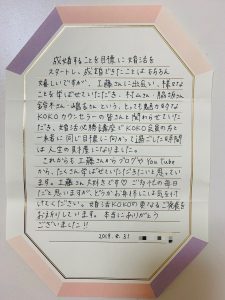 成婚することを目標に婚活を
スタートし、成婚できたことはもちろん
嬉しいですが、工藤さんに出会い、様々な
ことを学ばせていただき、村山さん、脇坂さん
鈴木さん、嶋吉さんという、とっても魅力的な
KOKOカウンセラーの皆さんと関わらせていた
だき、婚活必勝講座でKOKO会員の方と
一緒に同じ目標に向かって過ごした時間
は人生の財産になりました。
これからも工藤さんからブログやYouTube
から、たくさん学ばせていただきたいと思ってい
ます。工藤さん大好きです♡ご多忙の毎日
だと思いますが、どうかお体には気を付け
てください。婚活KOKOの更なるご発展を
お祈りしています。本当にありがとう
ございました!!
2019. 8. 31